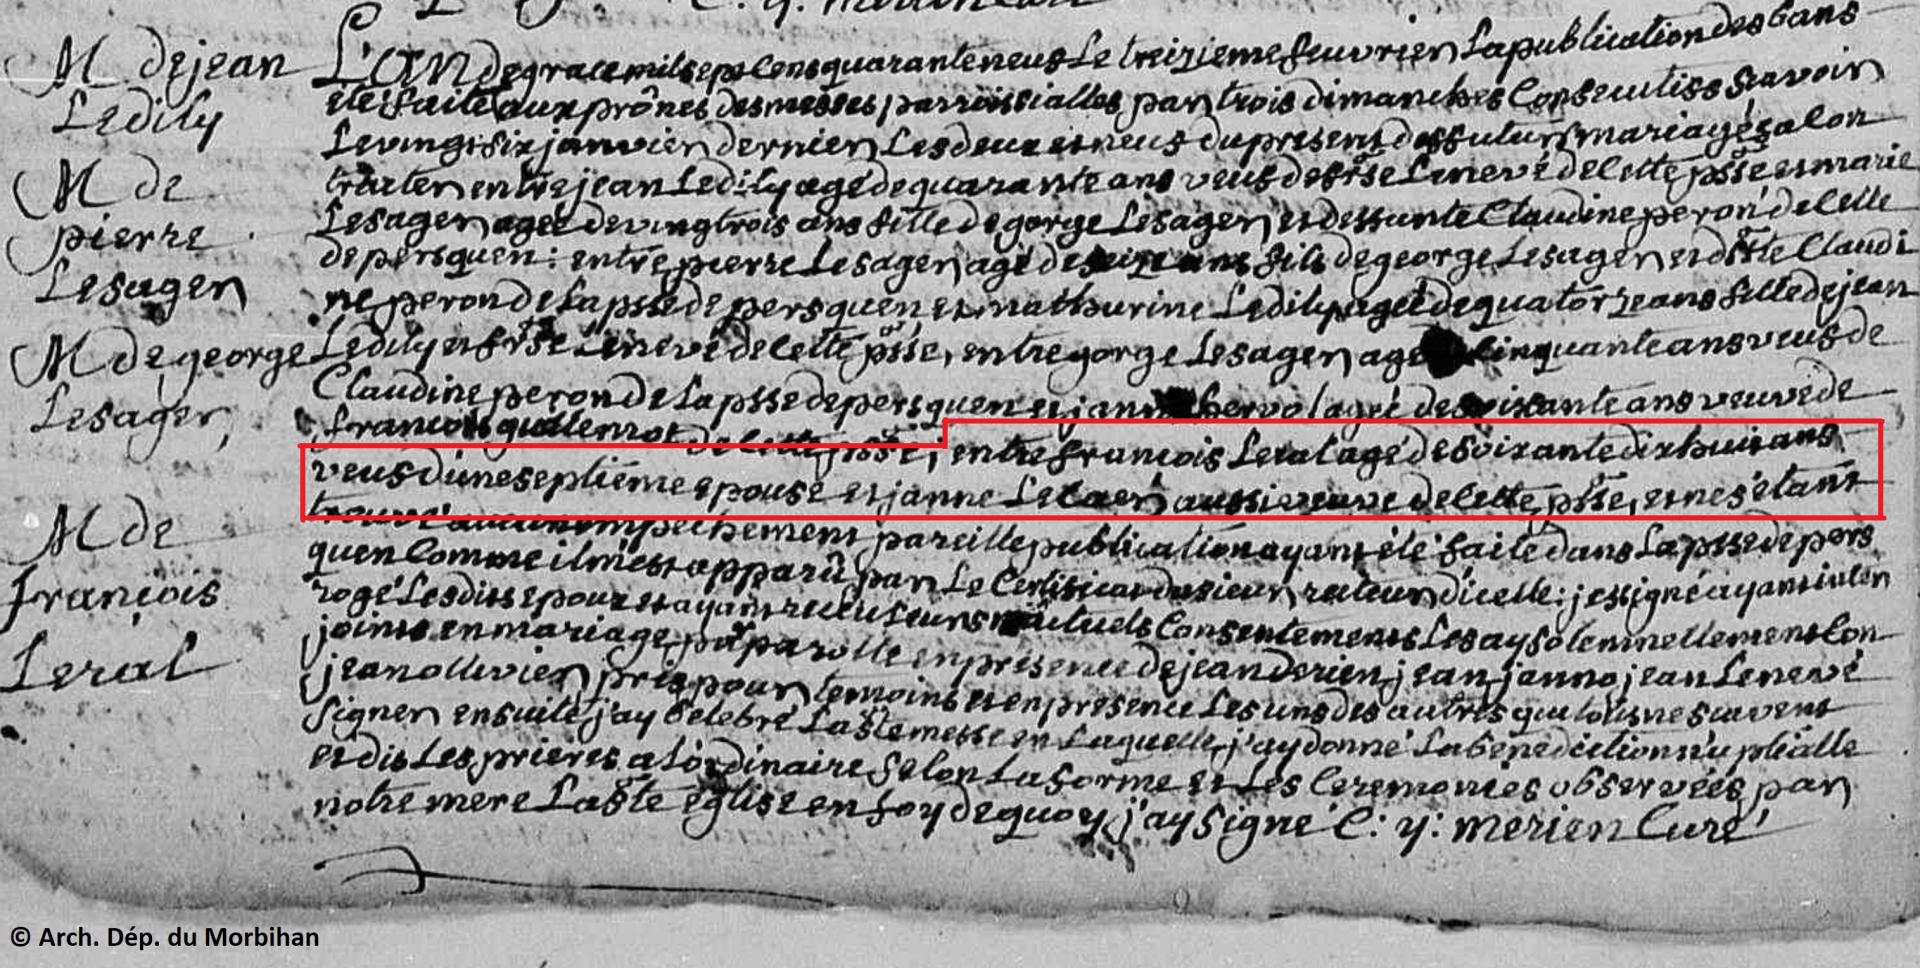 M de jean
Ledily
M de
pierre
Lesager
M de george
Lesager,
M de
françois
Leral
L'an de grace mil sept cens quarante neuf Le treizieme feuvrier La publication des bans
eté faite aux prônes des messes parroissialles par trois dimanches consecutifs sçavoir
Le vingt six janvier dernier Les deux et neuf du present des futurs mariages a lon
traiter entre jean Ledily agé de quarante ans veuf de frse Lenevé de cette psse et marie
Lesager ageé de vingt trois ans fille de gorge Lesager et deffunte Claudine peron de celle
de persquen: entre pierre Lesager agé de seize ans fils de george Lesager et dfte Claudi
ne peron de la psse de persquen, et mathurine Ledily ageé de quatorze ans fille de jean
Ledily et frse Lenevé de cette psse, entre gorge Lesager agé cinquante ans veuf de
Claudine peron de La psse de persquen et janne hervo agée de soixante ans veuve de
francois de cette psse, entre francois Leral agé de soixante dix huit ans
veuf d'une septieme epouse et janne Lecaer aussi veuve de cette psse, et ne s'etant
trouvé aucun empechement pareille publication ayant eté faite dans La psse de pers
quen comme il m'est apparû par Le Certificat du sieur recteur d'icelle: je ssigné ayant inter
rogé Lesdits epoux et ayant receu leurs mutuels consentements Les ay solemnellement con
joints en mariage par parolle en presence de jean derien, jean janno, jean Lenevé
jean ollivier, pris pour temoins et en presence Les uns des autres qui tous ne scavent
signer ensuite j'ay celebré La ste messe en Laquelle j'ay donné La benediction nuptialle
et dis Les prieres a l'ordinaire selon La forme et Les ceremonies observées par
notre mere La ste eglise en foy de quoy j'ay signé C: y: merien Curé
© Arch. Dép. du Morbihan